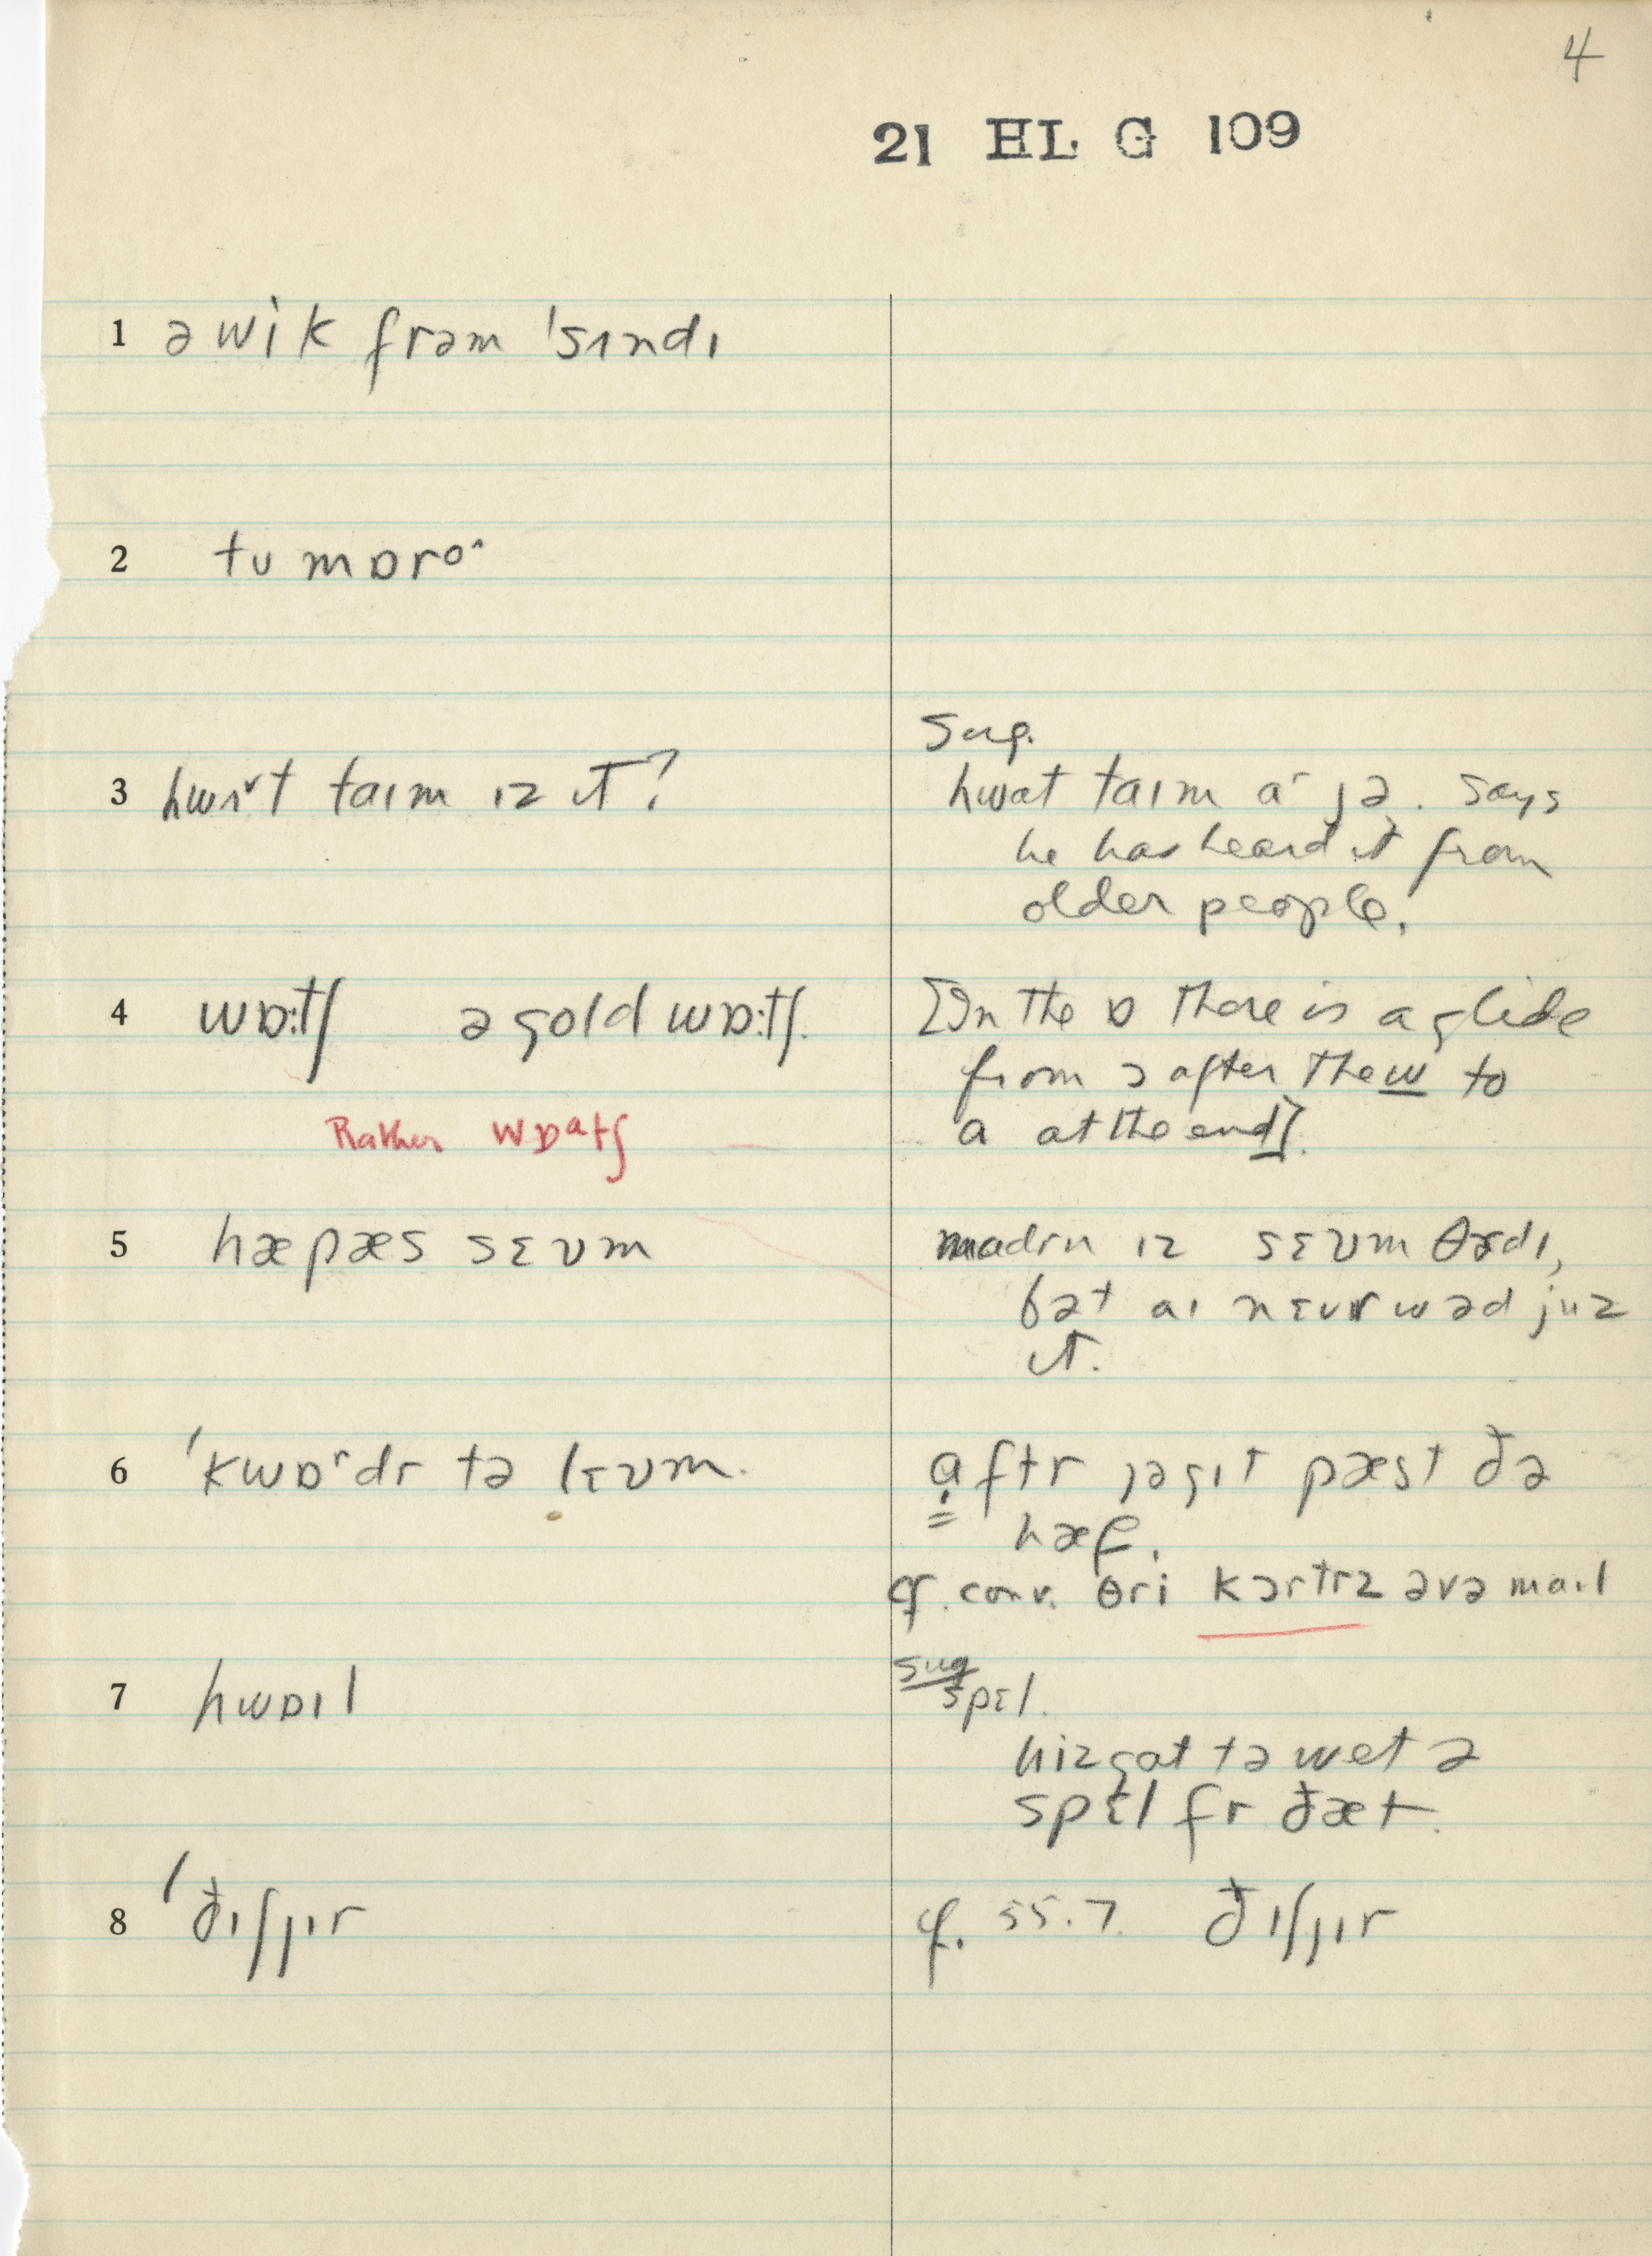 4
21 HL G 109
1 ə wik frəm 'sʌndɪ
2 tʊ mɒroˆ
Sug.
3 hwʌᵛt taɪm ɪz ɪt? hwat taɪm a' jə. says
he has heard it from
older people.
4 wɒ:tʃ ə gold wɒ:tʃ. [In the ɒ there is a glide
from ɔ after the w to
Rather wɒᵃtʃ a at the end].
5 hæpæs sɛvm madrn ɪz sɛvm θɝdɪ,
bət aɪ nɛvr wəd juz
ɪt.
6 'kwɒʳdr tə lɛvm. aftr jəgɪt pæst ðə
hæf.
cf. conv. θri kɔrtrz əvə maɪl
sug
7 hwɒɪl spɛl.
hizgat tə wet ə
spɛl fr ðæt.
8 'ðɪʃjɪr cf. 55.7. ðɪʃjɪr